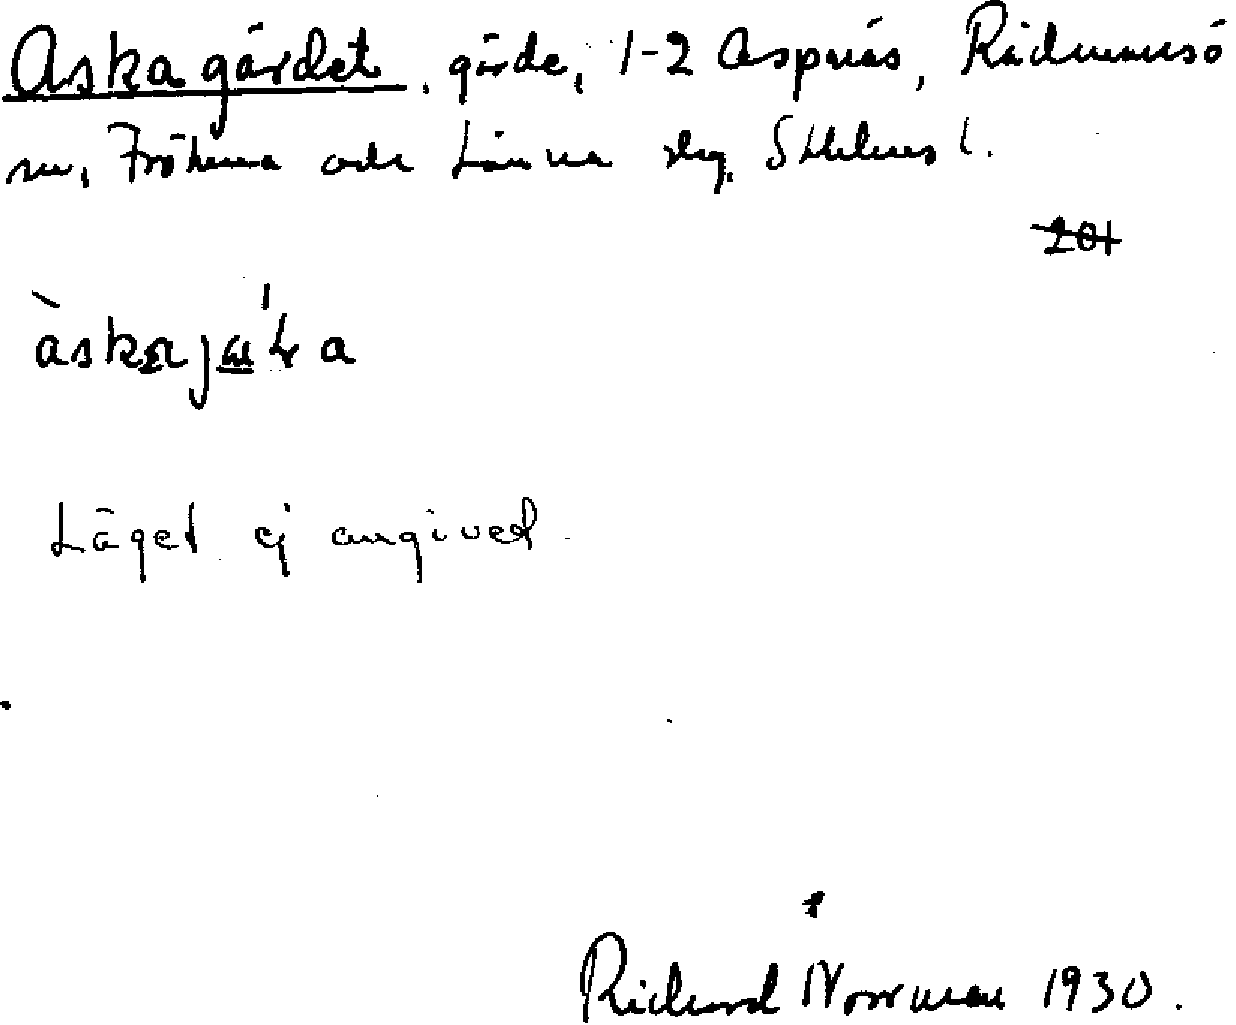 Askagärdet, gärde, 1-2 Aspnäs, Rådmansö
sn, Fröhuna och Länna skg, Sthlms l.
201
Läget ej angivet
Richard Norrman 1930.